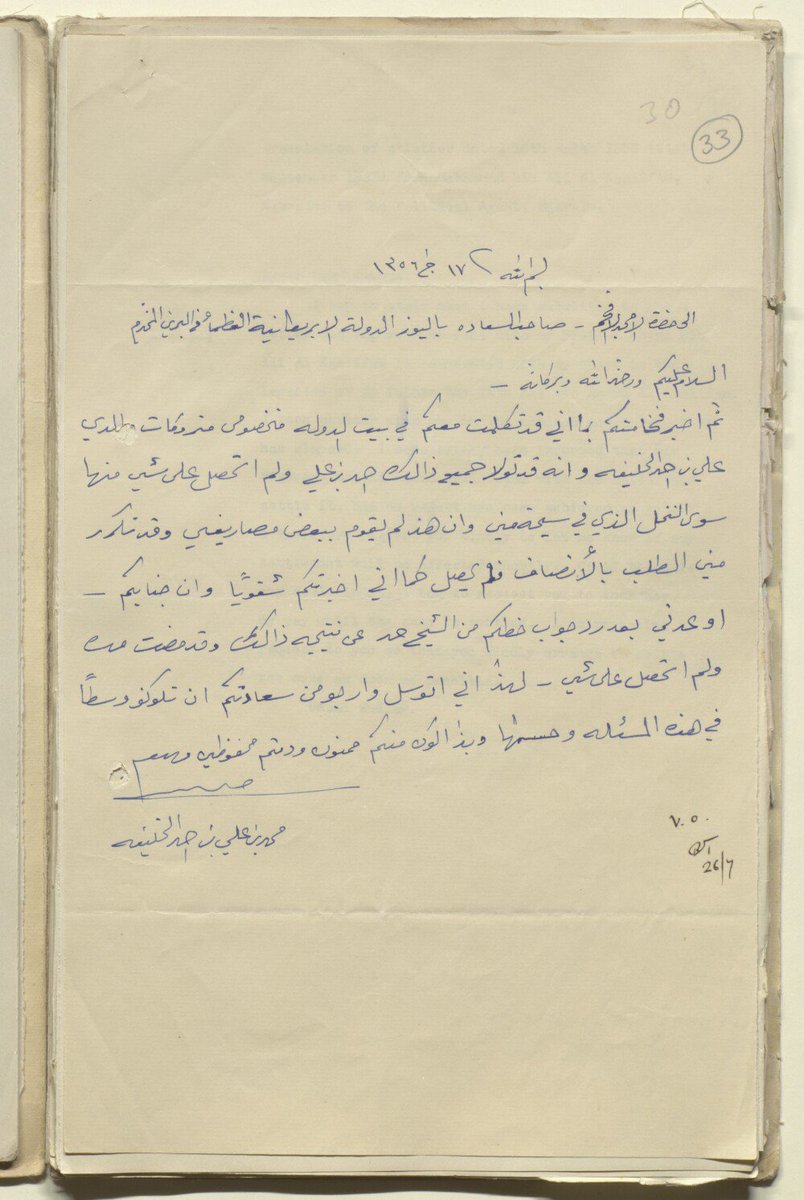 30
33
بسم الله ١٧ ج١ ١٣٥٦
الى حضرة الامجد الافخم - صاحب السعاده باليوز الدولة الابريطانية العظما في البحرين المحترم
السلام عليكم ورحمة الله وبركاته -
ثم اخبر فخامتكم بما اني قد تكلمت معكم في بيت الدوله مخصوص متروكات والدي
علي بن احمد الخليفه وانه قد تولا جميع ذالك احمد بن علي ولم اتحصل على شي منها
سوى النخل الذي في سيحة مني وان هذ لم يقوم ببعض مصاريفي وقد تكرر
مني الطلب بالأنصاف فلم يحصل كما اني اخبرتكم شفويًا وان جنابكم -
اوعدني بعد رد جواب خطكم من الشيخ حمد عن نتيجه ذالك وقد مضت مده
ولم اتحصل على شي - لهذا اني اتوسل وارجو من سعادتكم ان تكونو وسطًا
في هذه المسئله وحسمها وبذالك اكون منكم ممنون ودمتم محفوظين
محمد بن علي بن احمد الخليفه
٧٠٥
26/7